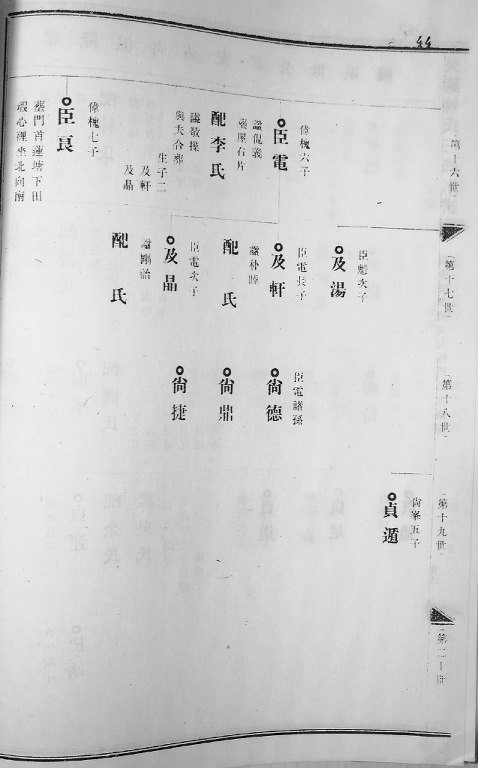 44
第十六世
偉槐六子
臣電
諡侃義
葬屋右片
配李氏
諡敬操
與夫合葬
生子二
及軒
及晶
偉槐七子
臣良
墓門首蓮塘下田
壩心裡坐北向南
第十七世
臣魁次子
及湯
臣電長子
及軒
諡朴睦
配 氏
臣電次子
及晶
諡剛詒
配 氏
第十八世
臣電諸孫
尚德
尚鼎
尚捷
第十九世
尚峯五子
貞遁
第二十世